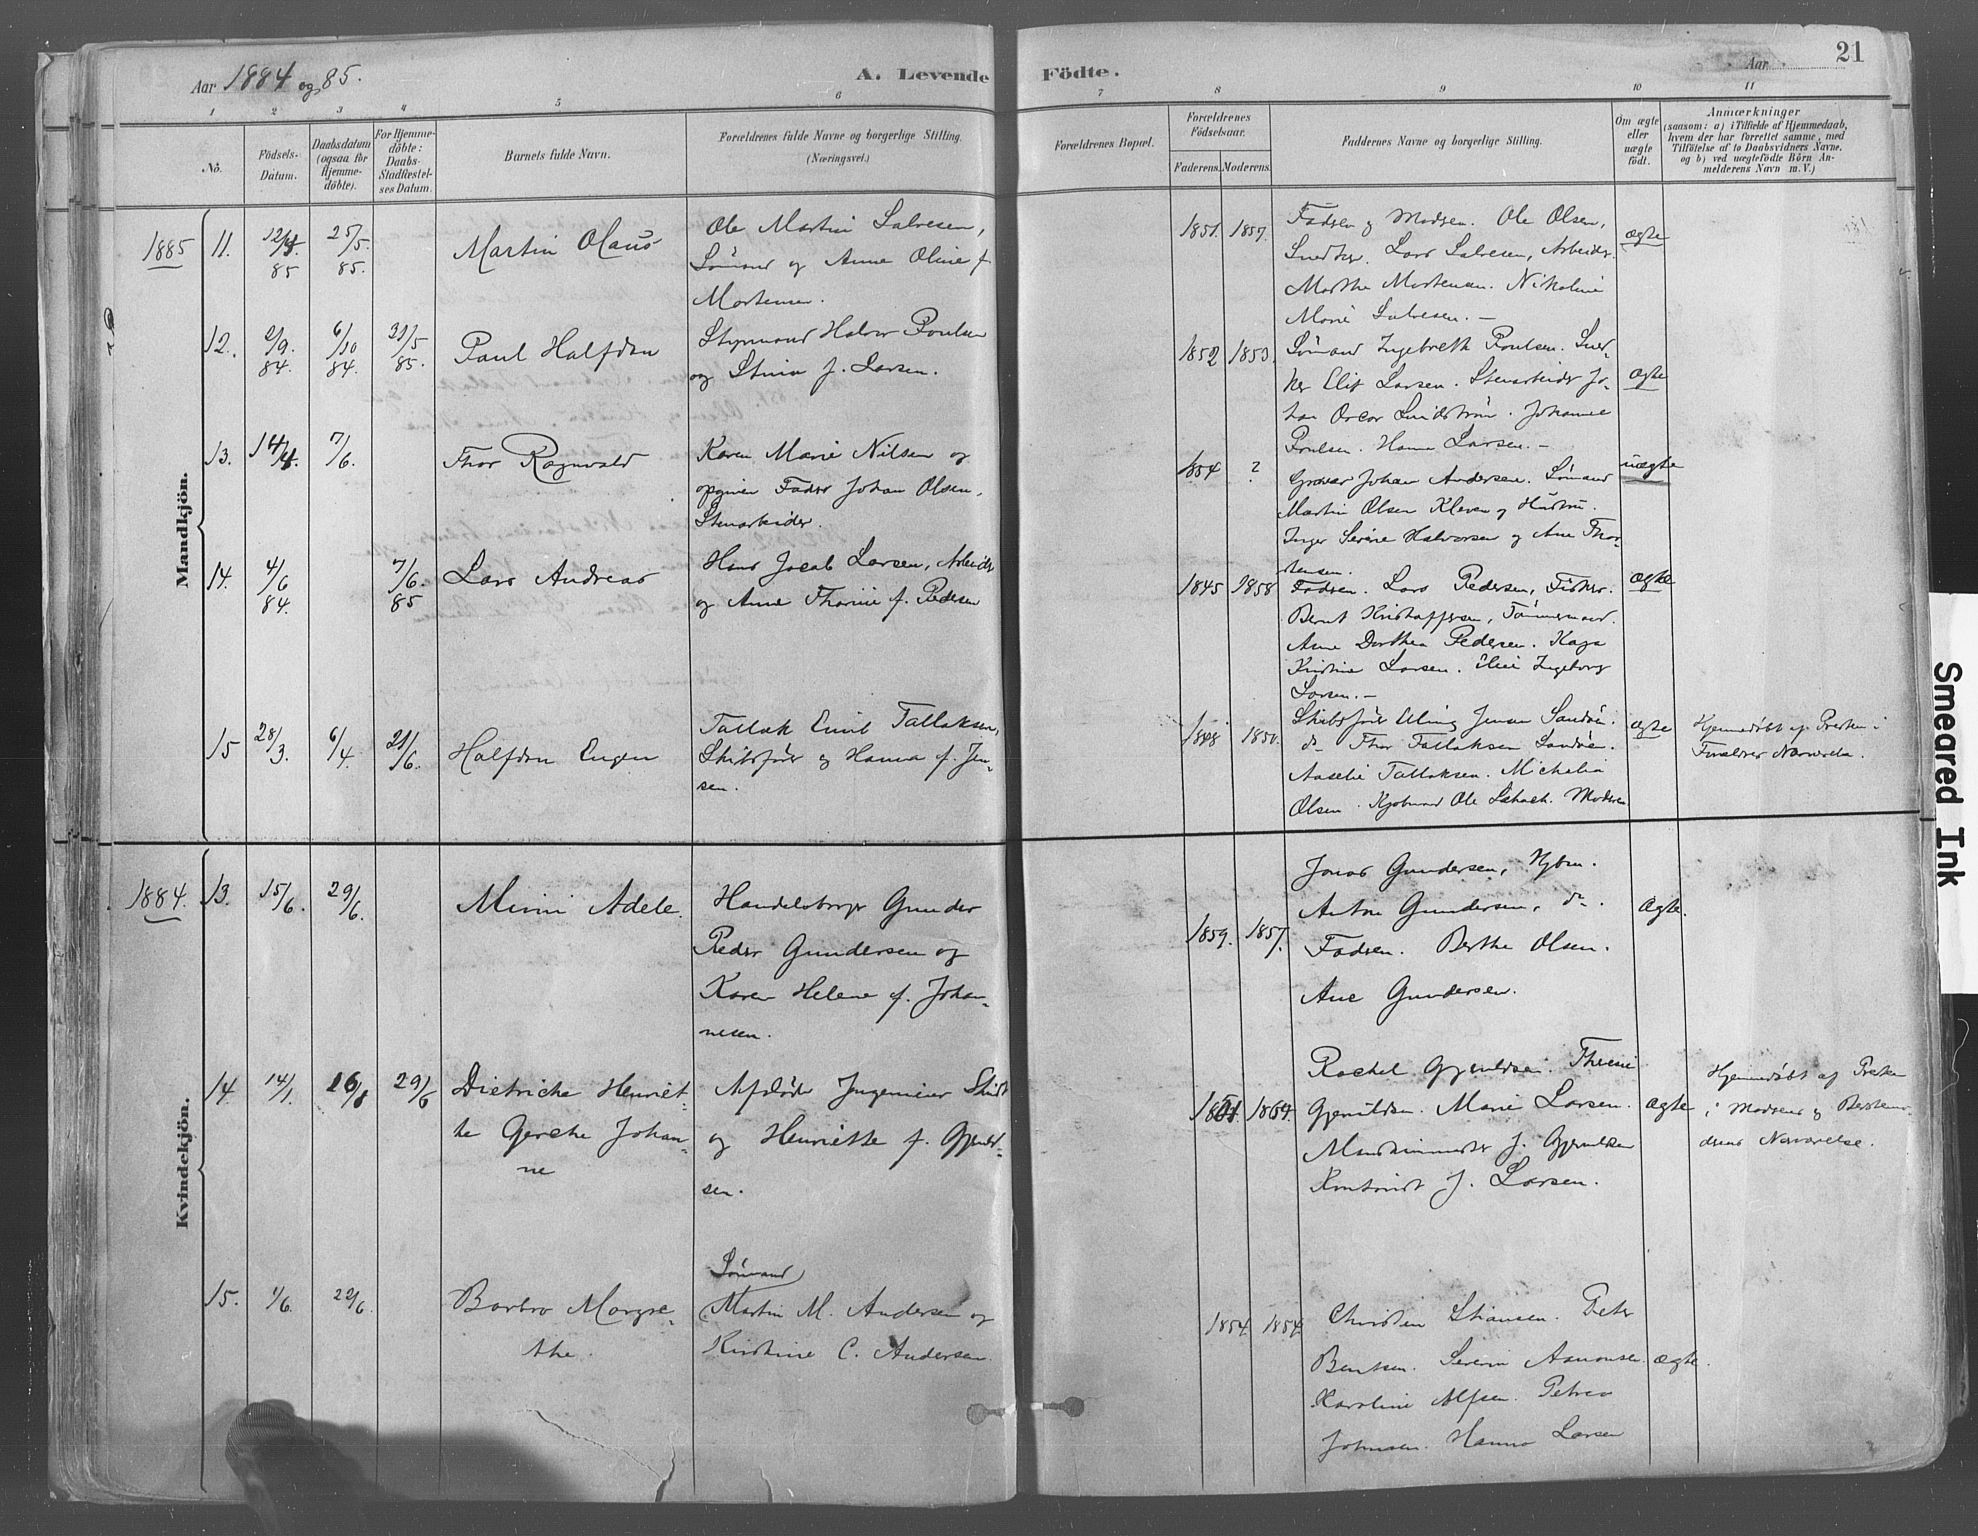 Aar 1884 og 85.
A. Levende Födte.
Aar
21
1 2 3 4 5 6 7 8 9 10 11
No.
Födsels-
Datum.
Daabsdatum
(ogsaa for
Hjemme-
döbte).
For Hjemme-
döbte:
Daabs-
Stadfæstel-
ses Datum.
Barnets fulde Navn.
Forældrenes fulde Navne og borgerlige Stilling.
(Næringsvei.)
Forældrenes Bopæl.
Forældrenes
Födselsaar.
Faderens. Moderens.
Faddernes Navne og borgerlige Stilling.
Om ægte
eller
uægte
födt.
Anmærkninger
(saasom: a) i Tilfælde af Hjemmedaab,
hvem der har forrettet samme, med
Tilföielse af to Daabsvidners Navne,
og b) ved uægtefödte Börn An-
melderens Navn m.V.)
Mandkjön.
1885
11.
12/4
85
25/5.
85.
Martin Olaus
Ole Martin Salvesen,
Sømand og Anne Oline f.
Mortensen.
1851. 1857.
Fadren og Modren. Ole Olsen,
Snedker. Lars Salvesen, Arbeider.
Marthe Mortensen. Nikoline
Marie Salvesen. –
ægte
12.
2/9.
84.
6/10
84.
31/5
85.
Paul Halfdan
Styrmand Halvor Poulsen
og Stina f. Larsen.
1852 1853.
Sømand Ingebreth Poulsen. Sned-
ker Elif Larsen. Stenarbeider Jo-
han Oscar Lindstrøm. Johanne
Poulsen. Hanna Larsen. –
ægte
13.
14/4.
7/6.
Thor Ragnvald
Karen Marie Nilsen og
opgiven Fader Johan Olsen,
Stenarbeider.
1854 ?
Graver Johan Andersen. Sømand
Martin Olsen Kleven og Hustru.
Inger Serine Halvorsen og Ane Thor-
stensen.
uægte
14.
4/6
84.
7/6.
85
Lars Andreas
Hans Jacob Larsen, Arbeider
og Anne Thorine f. Pedersen
1845 1858
Fadren. Lars Pedersen, Fisker.
Bernt Kristoffersen, Tømmermand.
Anne Dorthea Pedersen. Kaja
Kristine Larsen. Ingeborg
Larsen. –
ægte
15
28/3.
6/4.
21/6.
Halfdan Eugen
Tallak Emil Tallaksen,
Skibsfører og Hanna f. Jen-
sen.
1848 1850.
Skibsfører Jensen Sandøen.
do Thor Tallaksen Sandøen.
Aaselie Tallaksen. Michalia
Olsen. Kjøbmand Ole Moderen
ægte
Hjemmedøbt af Presten i
Forældres Nærværelse.
Kvindekjön.
1884.
13.
15/6.
29/6.
Minni Adele.
Handelsborger Gunder
Peder Gundersen og
Karen Helene f. Johan-
nesen.
1859. 1857.
Jonas Gundersen,
Anton Gundersen, do.
Fadren. Berthe Olsen.
Ane Gundersen.
Ægte.
14.
14/1.
16/8
29/6
Dietricke Henriet-
te Gercke Johan-
ne
Afdøde Ingeniør
og Henriette f. Gjeruld-
sen.
1864
Rachel Gjeruldsen. Thrine
Gjeruldsen. Marie Larsen.
Maskinmester J. Gjeruldsen
Kontorist J. Larsen.
ægte
Hjemmedøbt af Presten
i Modrens og Bestemo-
drens Nærværelse.
15.
1/6.
22/6.
Barbro Margre-
the.
Sømand
Martin M. Andersen og
Kirstine C. Andersen.
1854. 1854
Christen Stiansen. Peter
Bentsen. Severin Aanonsen.
Karoline Alfsen. Petrea
Johnsen. Hanna Larsen
ægte.
Smeared Ink